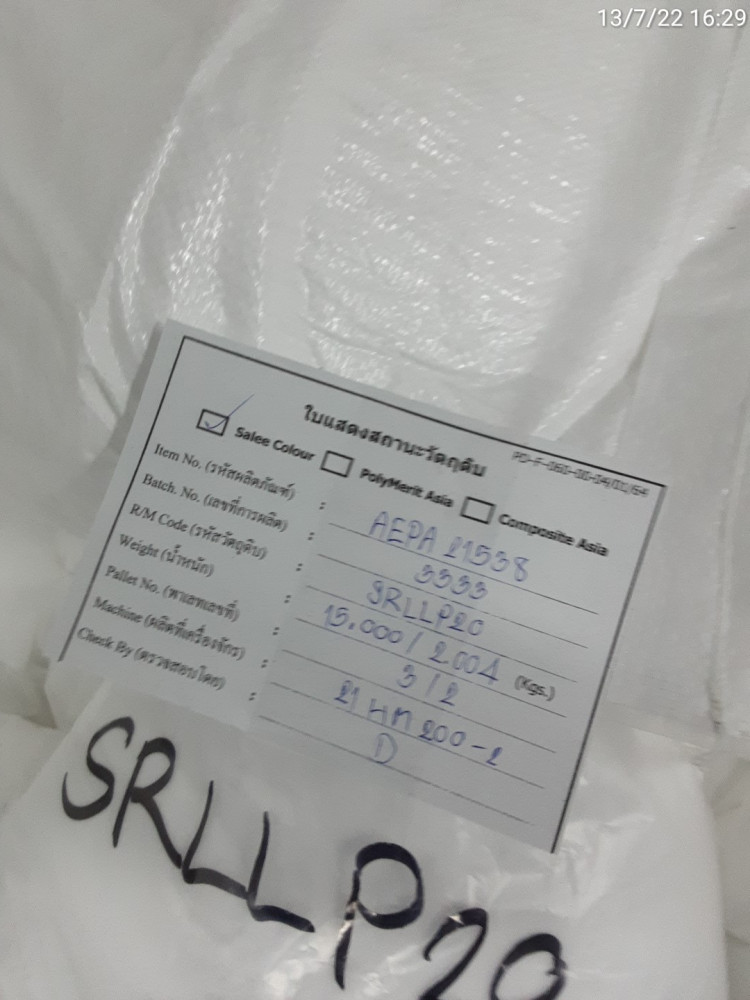 13/7/22 16:29
PD-F-060-00-04/01/64
ใบแสดงสถานะวัตถุดิบ
Salee Colour PolyMerit Asia Composite Asia
Item No. (รหัสผลิตภัณฑ์) : AEPA 21538
Batch. No. (เลขที่การผลิต) : 3333
R/M Code (รหัสวัตถุดิบ) : SRLLP20
Weight (น้ำหนัก) : 15.000 / 2.004 (Kgs.)
Pallet No. (พาเลทเลขที่) : 3 / 2
Machine (ผลิตที่เครื่องจักร) : 21 HM 200-2
Check By (ตรวจสอบโดย) : D
SRLLP20